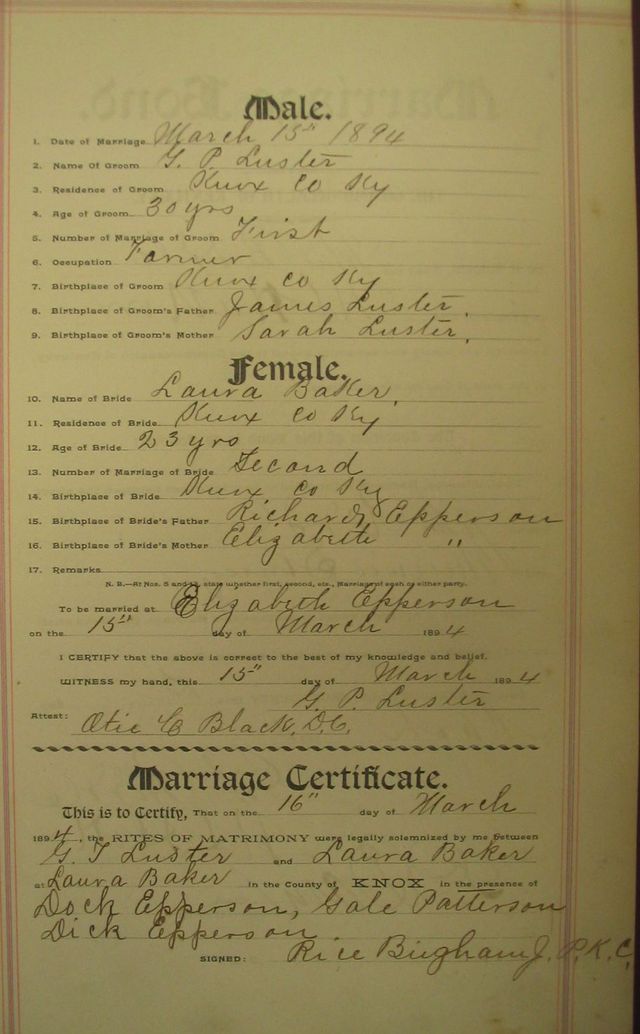 Male.
1. Date of Marriage March 15" 1894
2. Name Of Groom G. P. Luster
3. Residence of Groom Knox Co Ky
4. Age of Groom 30 yrs
5. Number of Marriage of Groom First
6. Occupation Farmer
7. Birthplace of Groom Knox Co Ky
8. Birthplace of Groom's Father James Luster.
9. Birthplace of Groom's Mother Sarah Luster.
Female.
10. Name of Bride Laura Baker.
11. Residence of Bride Knox Co Ky
12. Age of Bride 23 yrs
13. Number of Marriage of Bride Second
14. Birthplace of Bride Knox Co Ky
15. Birthplace of Bride's Father Richard Epperson
16. Birthplace of Bride's Mother Elizabeth "
17. Remarks
N. B.—At Nos. 5 and 13, state whether first, second, etc., Marriage of each or either party.
To be married at Elizabeth Epperson
on the 15" day of March 1894
I CERTIFY that the above is correct to the best of my knowledge and belief.
WITNESS my hand, this 15" day of March 1894
G. P. Luster
Attest: Otie C Black, D.C.
Marriage Certificate.
This is to Certify, That on the 16" day of March
1894, the RITES OF MATRIMONY were legally solemnized by me between
G. T Luster and Laura Baker
at Laura Baker in the County of KNOX in the presence of
Dock Epperson, Gale Patterson
Dick Epperson.
SIGNED: Rice Bingham J. P. K. C.